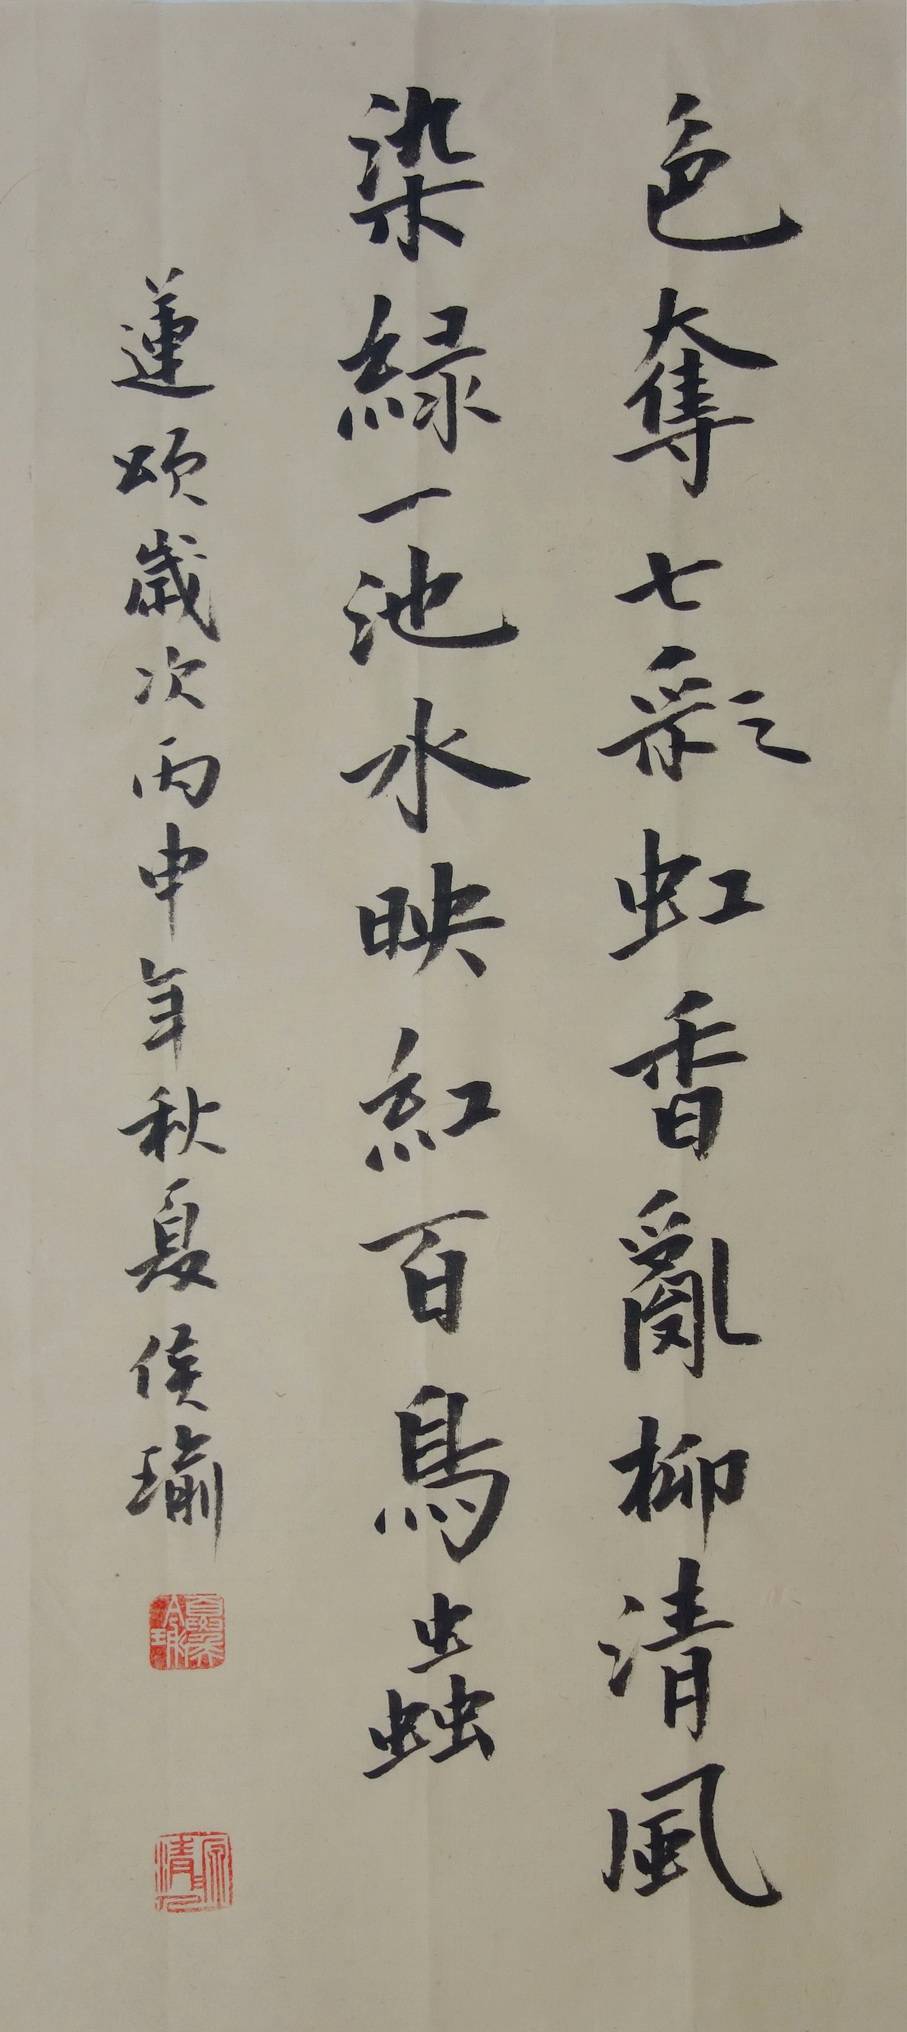 色奪七彩虹香亂柳清風
染緑一池水映紅百鳥蟲
蓮頌歲次丙申年秋夏侯瑜